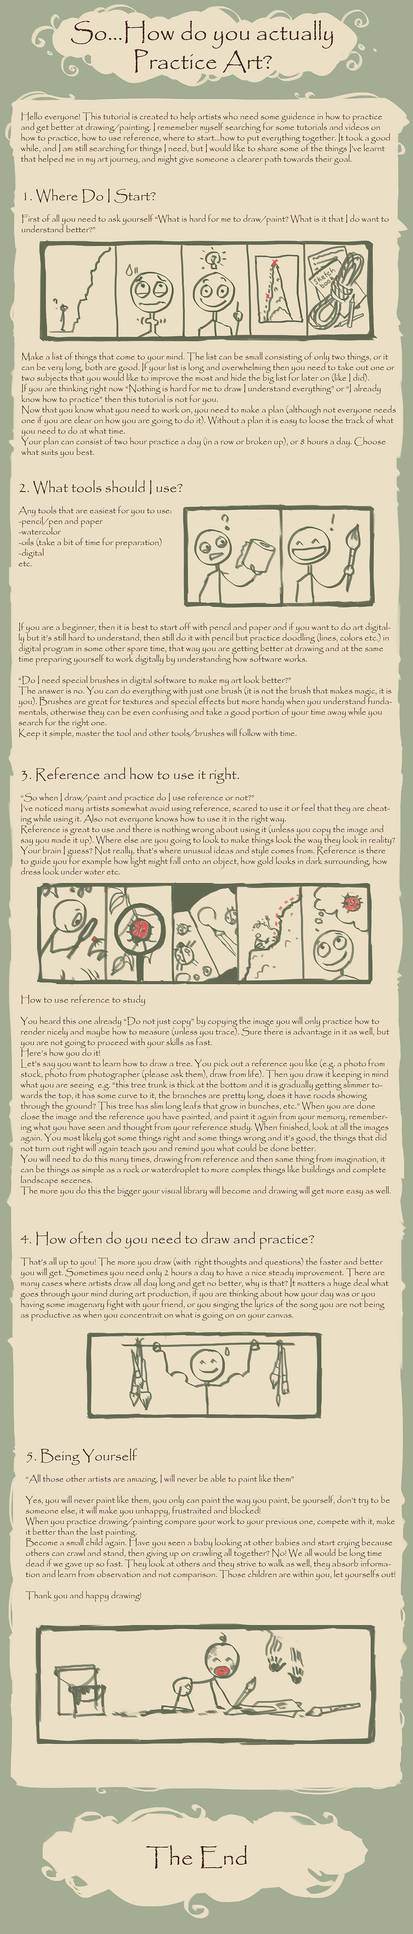 So...How do you actually
Practice Art?
Hello everyone! This tutorial is created to help artists who need some guidence in how to practice
and get better at drawing/painting. I rememeber myself searching for some tutorials and videos on
how to practice, how to use reference, where to start...how to put everything together. It took a good
while, and I am still searching for things I need, but I would like to share some of the things I've learnt
that helped me in my art journey, and might give someone a clearer path towards their goal.
1. Where Do I Start?
First of all you need to ask yourself "What is hard for me to draw/paint? What is it that I do want to
understand better?"
Sketch
book
Make a list of things that come to your mind. The list can be small consisting of only two things, or it
can be very long, both are good. If your list is long and overwhelming then you need to take out one or
two subjects that you would like to improve the most and hide the big list for later on (like I did).
If you are thinking right now "Nothing is hard for me to draw I understand everything" or "I already
know how to practice" then this tutorial is not for you.
Now that you know what you need to work on, you need to make a plan (although not everyone needs
one if you are clear on how you are going to do it). Without a plan it is easy to loose the track of what
you need to do at what time.
Your plan can consist of two hour practice a day (in a row or broken up), or 8 hours a day. Choose
what suits you best.
2. What tools should I use?
Any tools that are easiest for you to use:
-pencil/pen and paper
-watercolor
-oils (take a bit of time for preparation)
-digital
etc.
If you are a beginner, then it is best to start off with pencil and paper and if you want to do art digital-
ly but it's still hard to understand, then still do it with pencil but practice doodling (lines, colors etc.) in
digital program in some other spare time, that way you are getting better at drawing and at the same
time preparing yourself to work digitally by understanding how software works.
"Do I need special brushes in digital software to make my art look better?"
The answer is no. You can do everything with just one brush (it is not the brush that makes magic, it is
you). Brushes are great for textures and special effects but more handy when you understand funda-
mentals, otherwise they can be even confusing and take a good portion of your time away while you
search for the right one.
Keep it simple, master the tool and other tools/brushes will follow with time.
3. Reference and how to use it right.
"So when I draw/paint and practice do I use reference or not?"
I've noticed many artists somewhat avoid using reference, scared to use it or feel that they are cheat-
ing while using it. Also not everyone knows how to use it in the right way.
Reference is great to use and there is nothing wrong about using it (unless you copy the image and
say you made it up). Where else are you going to look to make things look the way they look in reality?
Your brain I guess? Not really, that's where unusual ideas and style comes from. Reference is there
to guide you for example how light might fall onto an object, how gold looks in dark surrounding, how
dress look under water etc.
How to use reference to study
You heard this one already "Do not just copy" by copying the image you will only practice how to
render nicely and maybe how to measure (unless you trace). Sure there is advantage in it as well, but
you are not going to proceed with your skills as fast.
Here's how you do it!
Let's say you want to learn how to draw a tree. You pick out a reference you like (e.g. a photo from
stock, photo from photographer (please ask them), draw from life). Then you draw it keeping in mind
what you are seeing e.g. "this tree trunk is thick at the bottom and it is gradually getting slimmer to-
wards the top, it has some curve to it, the branches are pretty long, does it have roods showing
through the ground? This tree has slim long leafs that grow in bunches, etc." When you are done
close the image and the reference you have painted, and paint it again from your memory, remember-
ing what you have seen and thought from your reference study. When finished, look at all the images
again. You most likely got some things right and some things wrong and it's good, the things that did
not turn out right will again teach you and remind you what could be done better.
You will need to do this many times, drawing from reference and then same thing from imagination, it
can be things as simple as a rock or waterdroplet to more complex things like buildings and complete
landscape secenes.
The more you do this the bigger your visual library will become and drawing will get more easy as well.
4. How often do you need to draw and practice?
That's all up to you! The more you draw (with right thoughts and questions) the faster and better
you will get. Sometimes you need only 2 hours a day to have a nice steady improvement. There are
many cases where artists draw all day long and get no better, why is that? It matters a huge deal what
goes through your mind during art production, if you are thinking about how your day was or you
having some imagenary fight with your friend, or you singing the lyrics of the song you are not being
as productive as when you concentrait on what is going on on your canvas.
5. Being Yourself
"All those other artists are amazing, I will never be able to paint like them"
Yes, you will never paint like them, you only can paint the way you paint, be yourself, don't try to be
someone else, it will make you unhappy, frustraited and blocked!
When you practice drawing/painting compare your work to your previous one, compete with it, make
it better than the last painting.
Become a small child again. Have you seen a baby looking at other babies and start crying because
others can crawl and stand, then giving up on crawling all together? No! We all would be long time
dead if we gave up so fast. They look at others and they strive to walk as well, they absorb informa-
tion and learn from observation and not comparison. Those children are within you, let yourselfs out!
Thank you and happy drawing!
The End